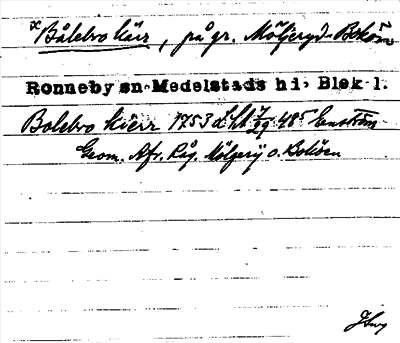 x Bålebro kärr, på gr. Möljeryd-Bokön
Ronneby sn. Medelstads hd. Blek. l.
Bolebro kierr 1753 Lht 7/29 485 Enström
Geom. Afr. Råg. Mölgerÿ o. Boköen